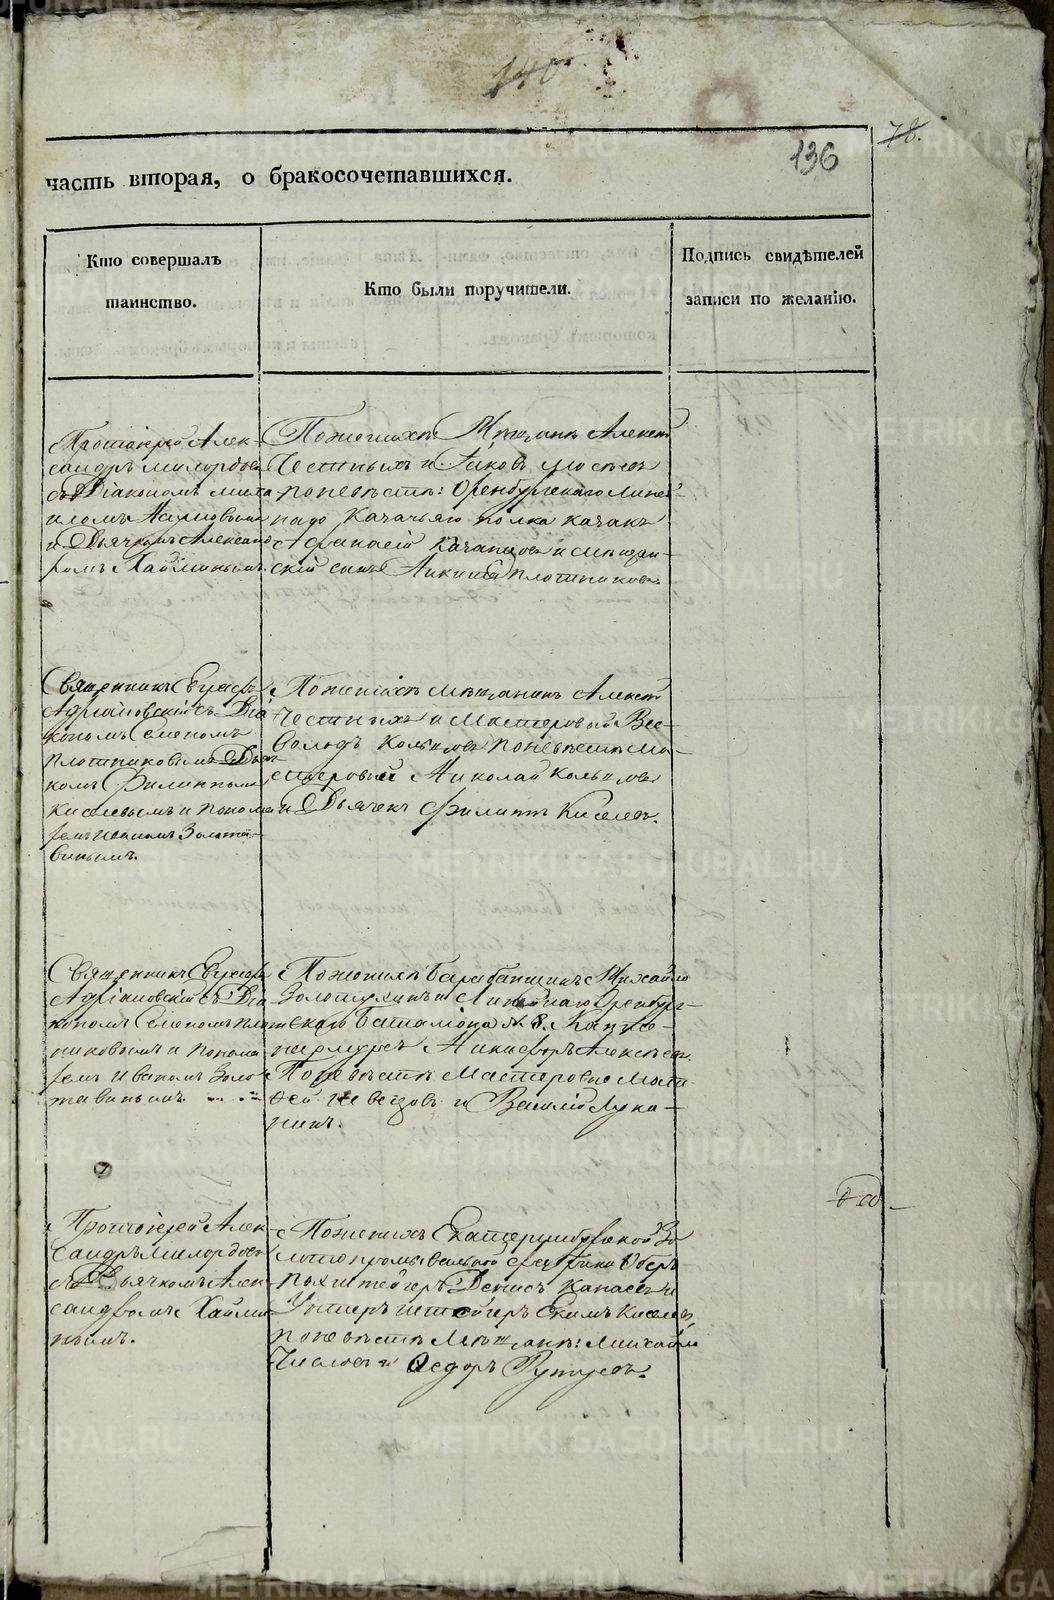 140
78.
136
часть вторая, о бракосочетавшихся.
Кто совершалъ
таинство.
Кто были поручители.
Подпись свидѣтелей
записи по желанію.
Протоіерей Алек-
сандръ Милордовъ
съ Діакономъ Миха
иломъ
и Дьячкомъ Александ
ромъ Хайминымъ.
По женихѣ: Мѣщане Алексѣй
Честныхъ и Іаковъ
по невѣстѣ: Оренбургскаго Линей-
наго Казачьяго полка казакъ
Афанасій Казанцовъ и мѣщан-
скій сынъ Никита Плотниковъ
Священникъ Евграфъ
Адріановскій съ Діа
кономъ Семеномъ
Плотниковымъ Дьяч
комъ Филиппомъ
Киселевымъ и понома
ремъ Иваномъ Золота-
винымъ.
По женихѣ мѣщанинъ Алексѣй
Честныхъ и Мастеровый Все-
володъ Копыловъ по невѣстѣ Ма-
стеровый Николай Копыловъ
и Дьячекъ Филиппъ Киселевъ.
Священникъ Евграфъ
Адріановскій съ Діа
кономъ Семеномъ Плот
никовымъ и понома
ремъ Иваномъ Золо
тавинымъ.
По женихѣ Барабанщикъ Михайло
Золотухинъ и Линейнаго Оренбург-
скаго Баталіона № 8. Капте-
нармусъ Никифоръ Алексѣевъ.
По невѣстѣ Мастеровые Мат-
фей и Василій Лука-
нинъ.
Протоіерей Алек
сандръ Милордовъ
съ Дьячкомъ Алек
сандромъ Хайми
нымъ.
По женихѣ Екатеринбургской Зо
лотопромывальной фабрики Оберъ-
Денисъ Капаевъ и
Унтеръ штейгеръ Екимъ Киселевъ,
по невѣстѣ Мѣщане: Михайло
и Ѳедоръ
METRIKI.GASO-URAL.RU